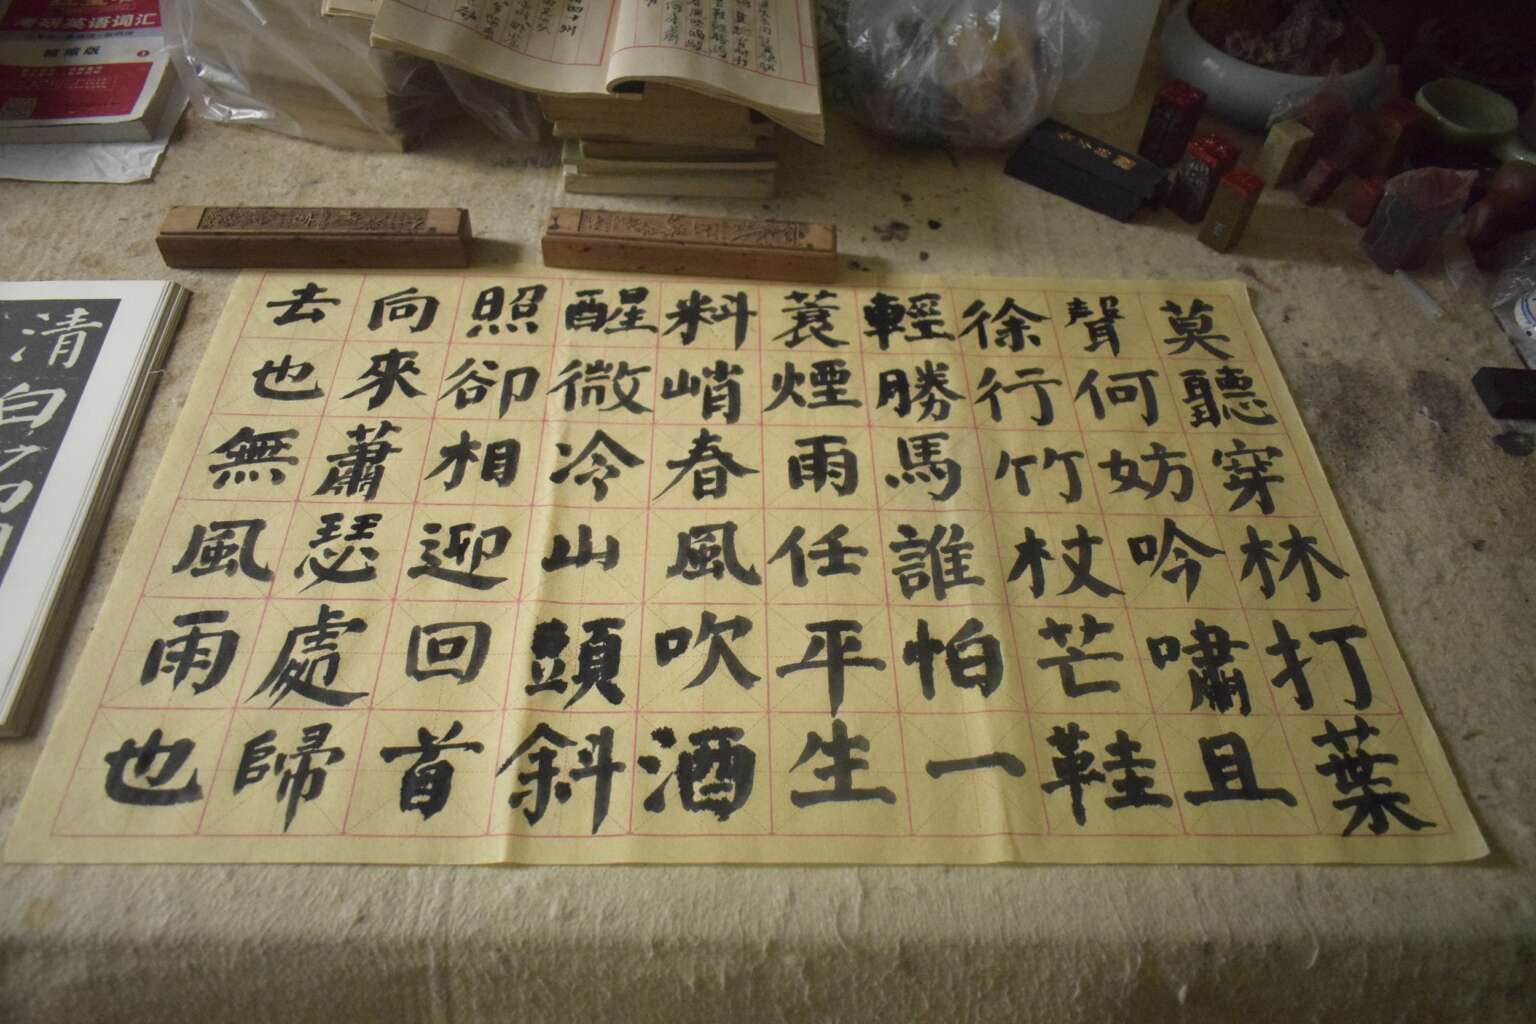 莫聽穿林打葉
聲何妨吟嘯且
徐行竹杖芒鞋
輕勝馬誰怕一
蓑煙雨任平生
料峭春風吹酒
醒微冷山頭斜
照卻相迎回首
向來蕭瑟處歸
去也無風雨也
清白
考研英语词汇